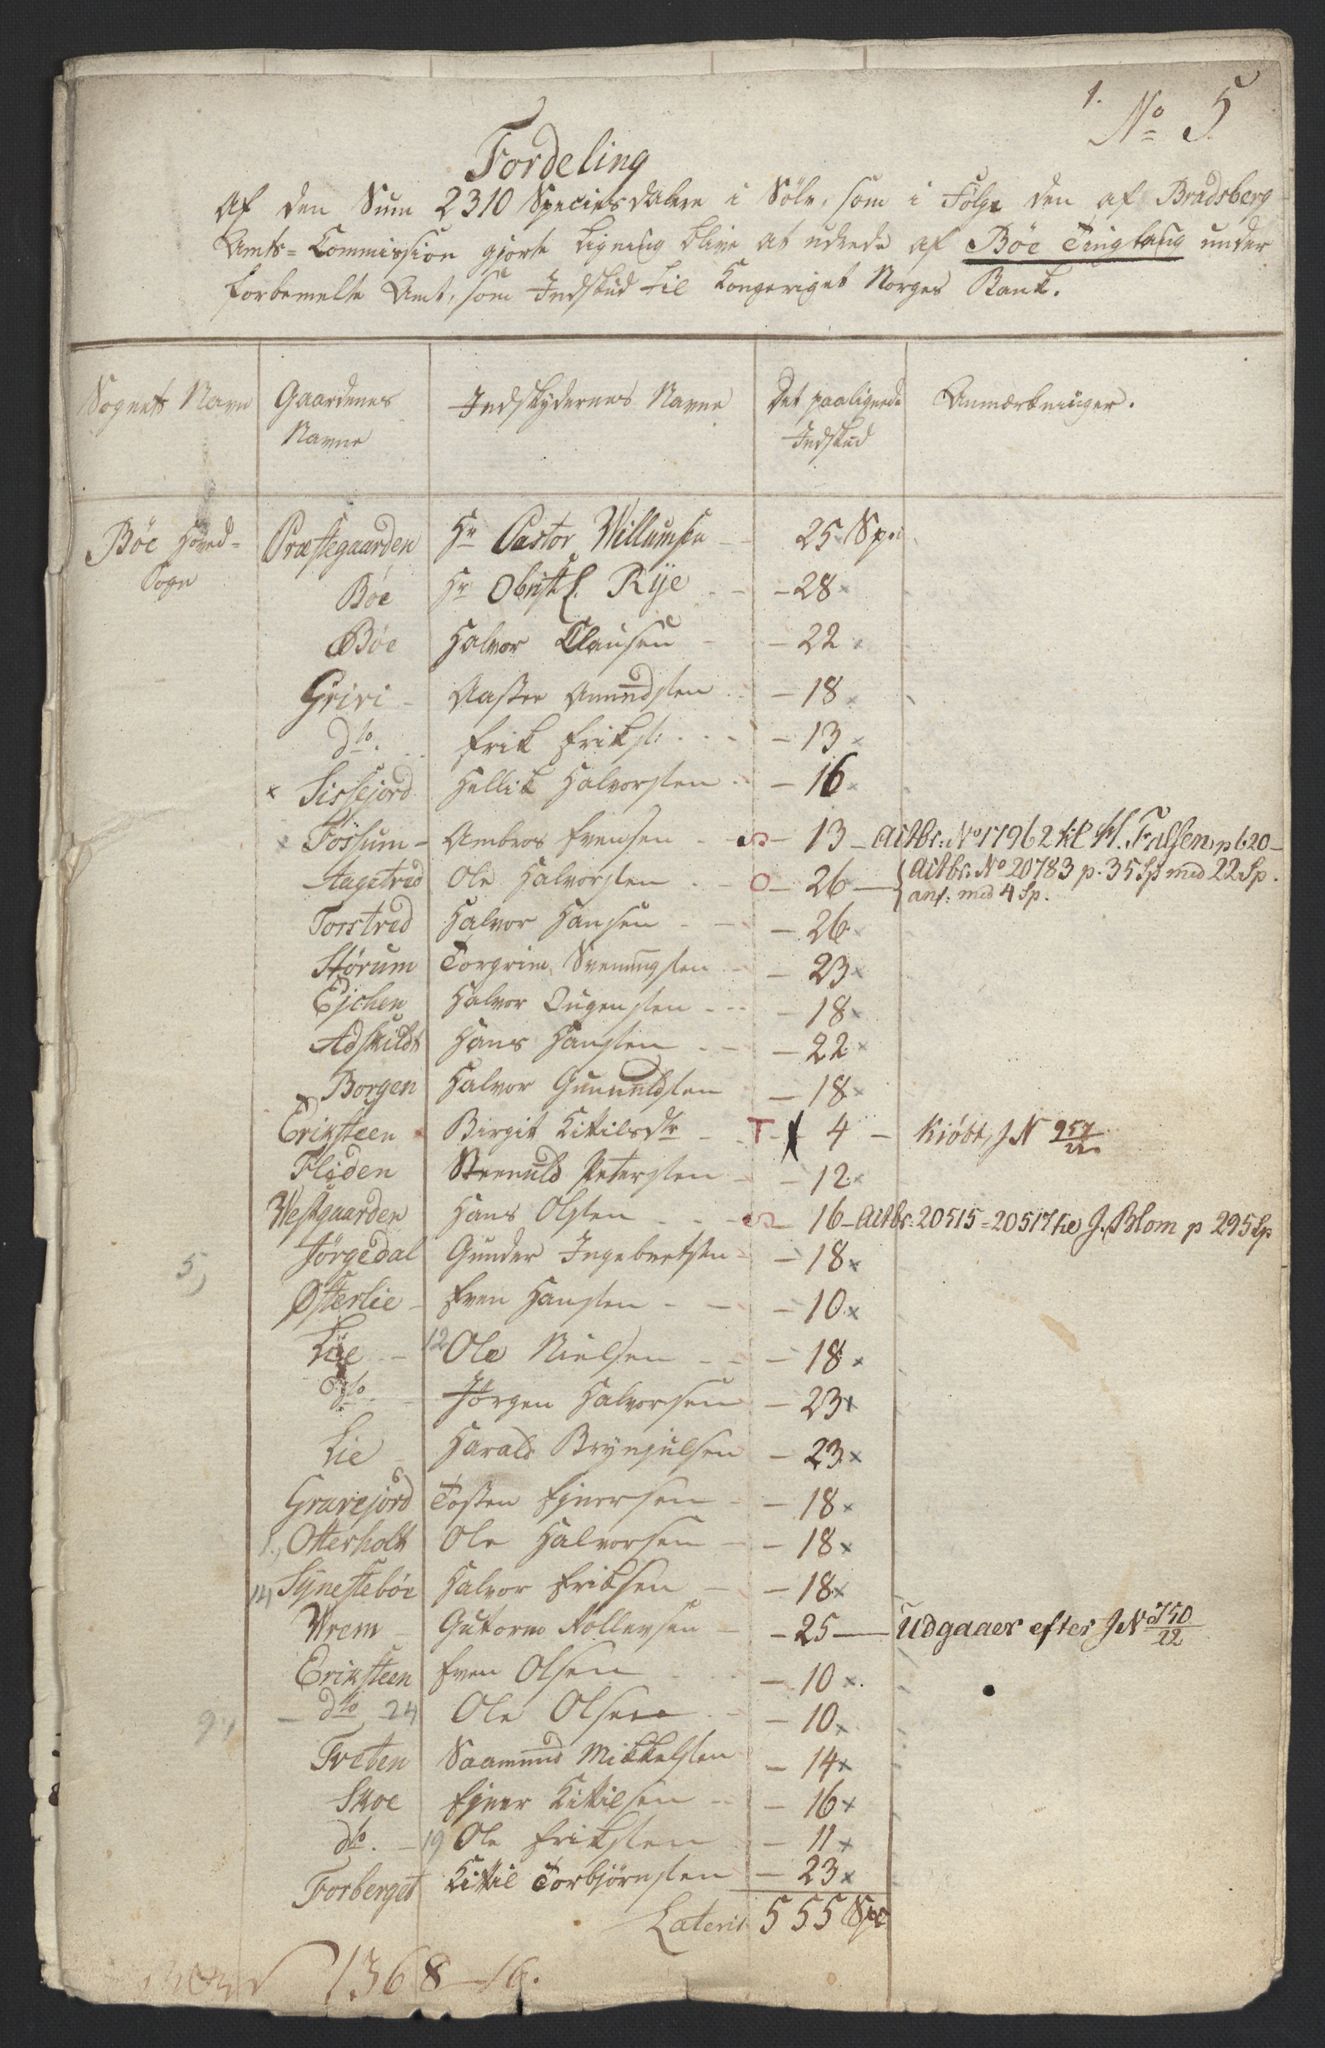 1. No 5
Fordeling
Af den Sum 2310 Speciesdalere i Sölv, som i Fölge den af Bradsberg
Amts-Commission gjorte Ligning blive at udrede af Böe Tinglaug under
forbemelte Amt, som Indskud til Kongeriget Norges Bank.
Sognets Navn Gaardenes Navne Indskydernes Navne Det paalignede Indskud Anmærkninger.
Böe Hoved-Sogn Præstegaarden Hr Pastor Willumsen 25 Spe
Böe Hr Obristl. Rye - 28 x
Böe Halvor Clausen - 22 x
Grivi - Aasten Amundsen - 18 x
dto. Erik Eriks: - 13 x
x Sissejord Hellik Halvorsen - 16 x
x Fossum - Ambros Evensen - 13 - Actbr: No 17962 til H. Falsen p 620 -
Stagetrod Ole Halvorsen O - 26 - Actbr. No 20783 p. 35 Sp med 22 Sp.
anf: med 4 Sp.
Torstrod Halvor Hansen - 26 x
Störum Torgrim Svenungsen - 23 x
Ejchen Halvor Ougensen - 18 x
Adskildt Hans Hansen - 22 x
Borgen Halvor Gunnuldsen - 18 x
Eriksteen Birgit Kittilsdtr T - 4 - Kiöbt, J N 957/22
Fliden Steenuld Petersen - 12 x
Westgaarden Hans Olsen - 16 - Actbr: 20515 = 20517 til J. Blom p 295 Sp
Jörgedal Gunder Ingebretsen - 18 x
5) Østerlie - Even Hansen - 10 x
Lie - 12 Ole Nielsen - 18 x
dto Jörgen Halvorsen - 23 x
Lie Harald Brynjulsen - 23 x
Gravejord Tosten Ejversen - 18 x
Otterholt Ole Halvorsen - 18 x
14 Synestebøe Halvor Eriksen - 18 x
Wrem Guttorm Rollevsen - 25 - Udgaaer efter J N 750/22
Eriksteen Even Olsen - 10 x
- dto 24 Ole Olsen - 10 x
Tveten Saamund Mikkelsen - 14 x
Skoe Ejver Kittilsen - 16 x
dto. - 19 Ole Eriksen - 11 x
Forberget Kittil Torbjörnsen - 23 x
Lateris 555 Spe
1368 - 16.